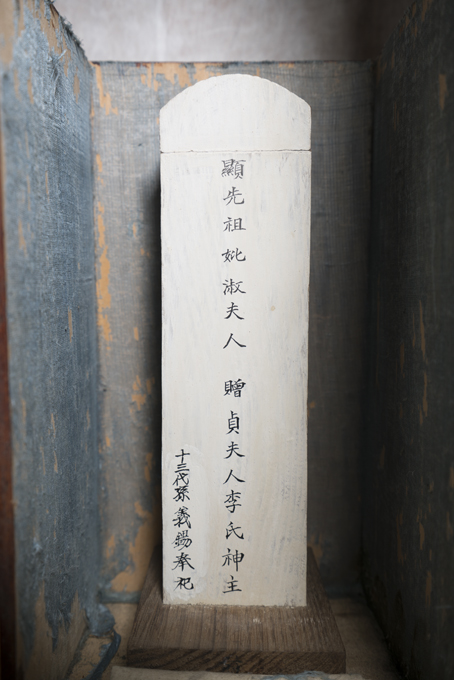 顯先祖妣淑夫人 贈貞夫人李氏神主
十三代孫義錫奉祀